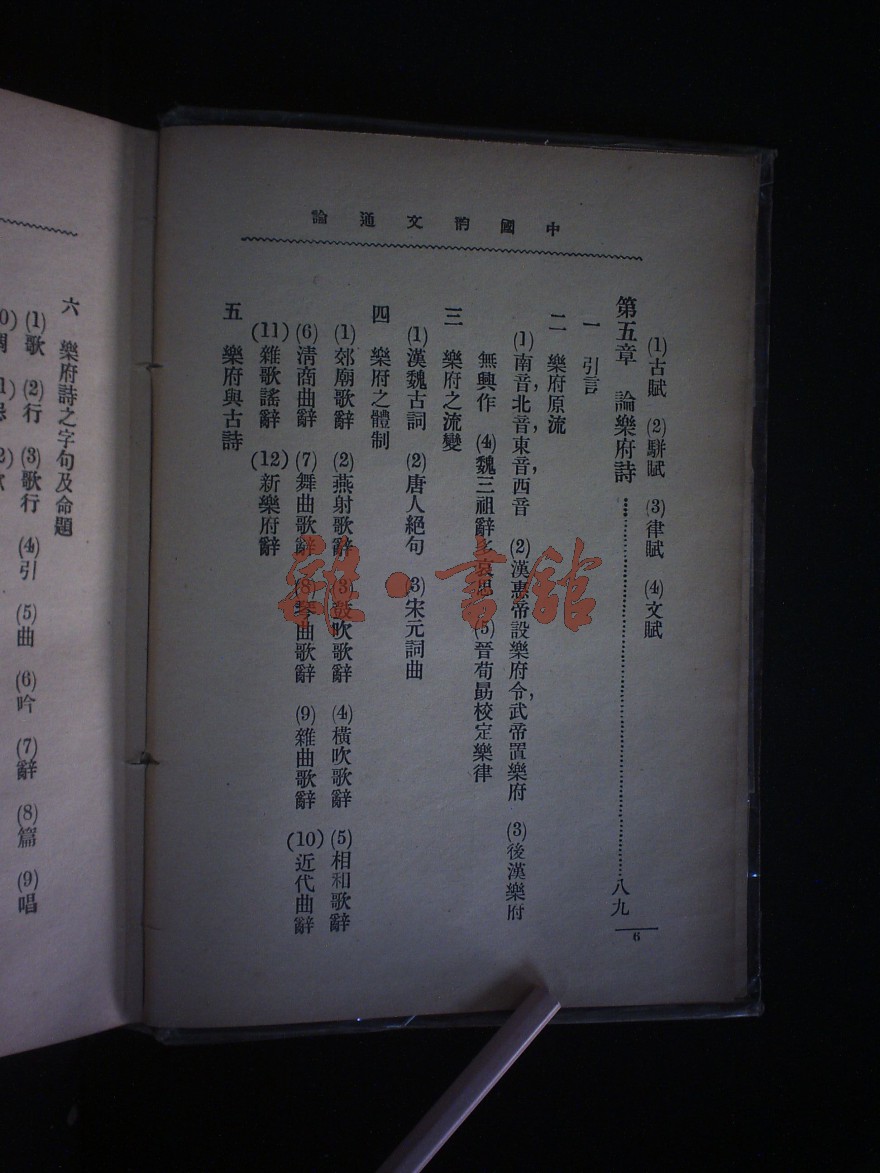 中國韵文通論
(1)古賦 (2)駢賦 (3)律賦 (4)文賦
第五章 論樂府詩……八九
一 引言
二 樂府原流
(1)南音,北音,東音,西音 (2)漢惠帝設樂府令,武帝置樂府 (3)後漢樂府
無興作 (4)魏三祖辭多哀思 (5)晉荀勗校定樂律
三 樂府之流變
(1)漢魏古詞 (2)唐人絕句 (3)宋元詞曲
四 樂府之體制
(1)郊廟歌辭 (2)燕射歌辭 (3)鼓吹歌辭 (4)橫吹歌辭 (5)相和歌辭
(6)清商曲辭 (7)舞曲歌辭 (8)琴曲歌辭 (9)雜曲歌辭 (10)近代曲辭
(11)雜歌謠辭 (12)新樂府辭
五 樂府與古詩
6
六 樂府詩之字句及命題
(1)歌 (2)行 (3)歌行 (4)引 (5)曲 (6)吟 (7)辭 (8)篇 (9)唱
雜·書館